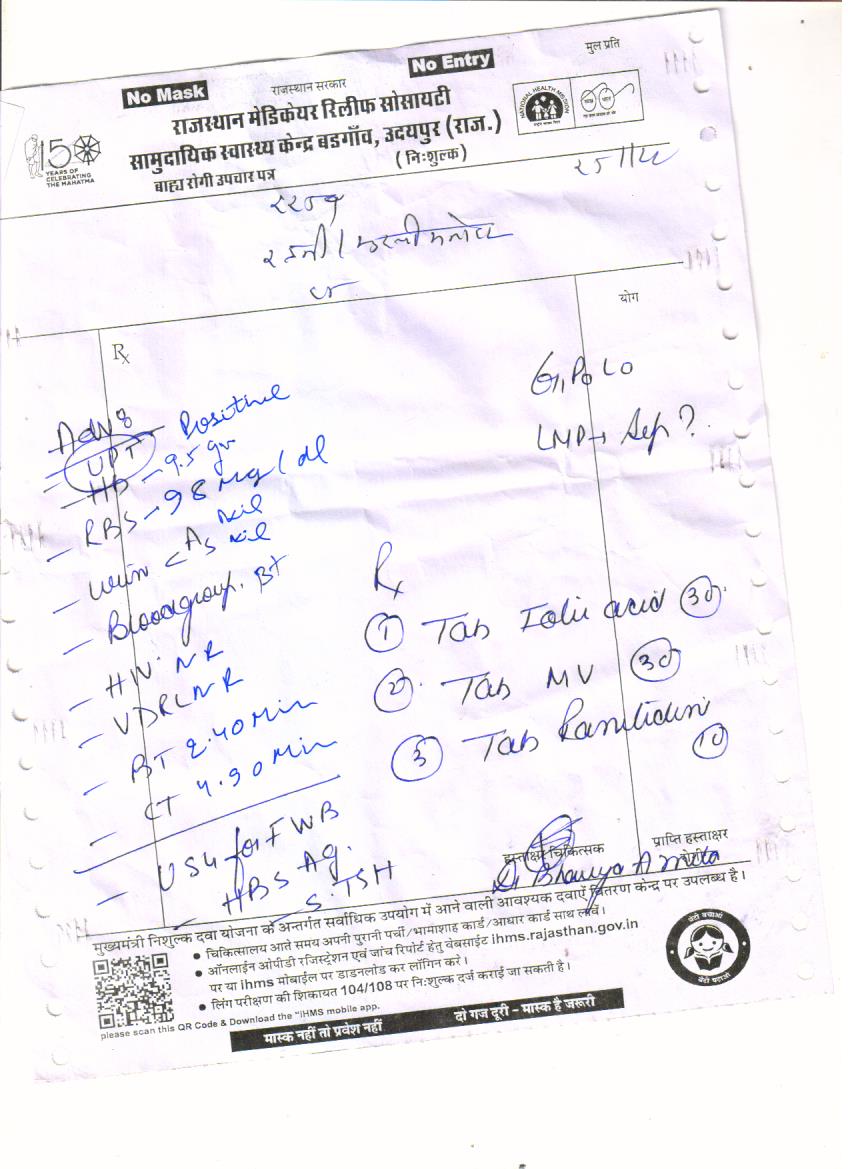 मुल प्रति
No Mask
No Entry
राजस्थान सरकार
राजस्थान मेडिकेयर रिलीफ सोसायटी
सामुदायिक स्वास्थ्य केन्द्र बडगाँव, उदयपुर (राज.)
(निःशुल्क)
बाह्य रोगी उपचार पत्र
150
YEARS OF
CELEBRATING
THE MAHATMA
NATIONAL HEALTH MISSION
योग
Rx
G1P0L0
LMP → Sep ?
Adv:
- UPT - Positive
- HB - 9.5 gm
- RBS - 98 mg / dl
- Urin < A Nil
S Nil
- Blood group. B+
- HIV. NR
- VDRL NR
- BT 2.40 Min
- CT 4.90 Min
- USG for FWB
- HBS Ag.
- S. TSH
Rx
① Tab Folic acid 30
② Tab MV 30
③ Tab Ranitidin
10
हस्ताक्षर चिकित्सक
प्राप्ति हस्ताक्षर
रोगी
मुख्यमंत्री निशुल्क दवा योजना के अन्तर्गत सर्वाधिक उपयोग में आने वाली आवश्यक दवाऐं वितरण केन्द्र पर उपलब्ध है।
• चिकित्सालय आते समय अपनी पुरानी पर्ची/भामाशाह कार्ड/आधार कार्ड साथ लावें।
• ऑनलाईन ओपीडी रजिस्ट्रेशन एवं जांच रिपोर्ट हेतु वेबसाईट ihms.rajasthan.gov.in
पर या ihms मोबाईल पर डाडनलोड कर लॉगिन करे।
• लिंग परीक्षण की शिकायत 104/108 पर निःशुल्क दर्ज कराई जा सकती है।
please scan this QR Code & Download the "IHMS mobile app.
मास्क नहीं तो प्रवेश नहीं
दो गज दूरी - मास्क है जरूरी
बेटी बचाओ
बेटी पढ़ाओ